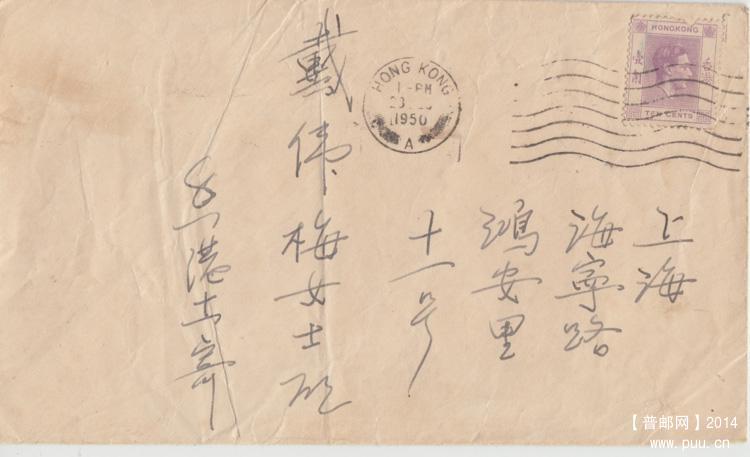 上海
海寧路
鴻安里
十一号
戴伟梅女士啟
香港
寄
HONGKONG
香港
壹角
TEN CENTS
HONG KONG
1 - PM
1950
A
【普邮网】2014
www.puu.cn